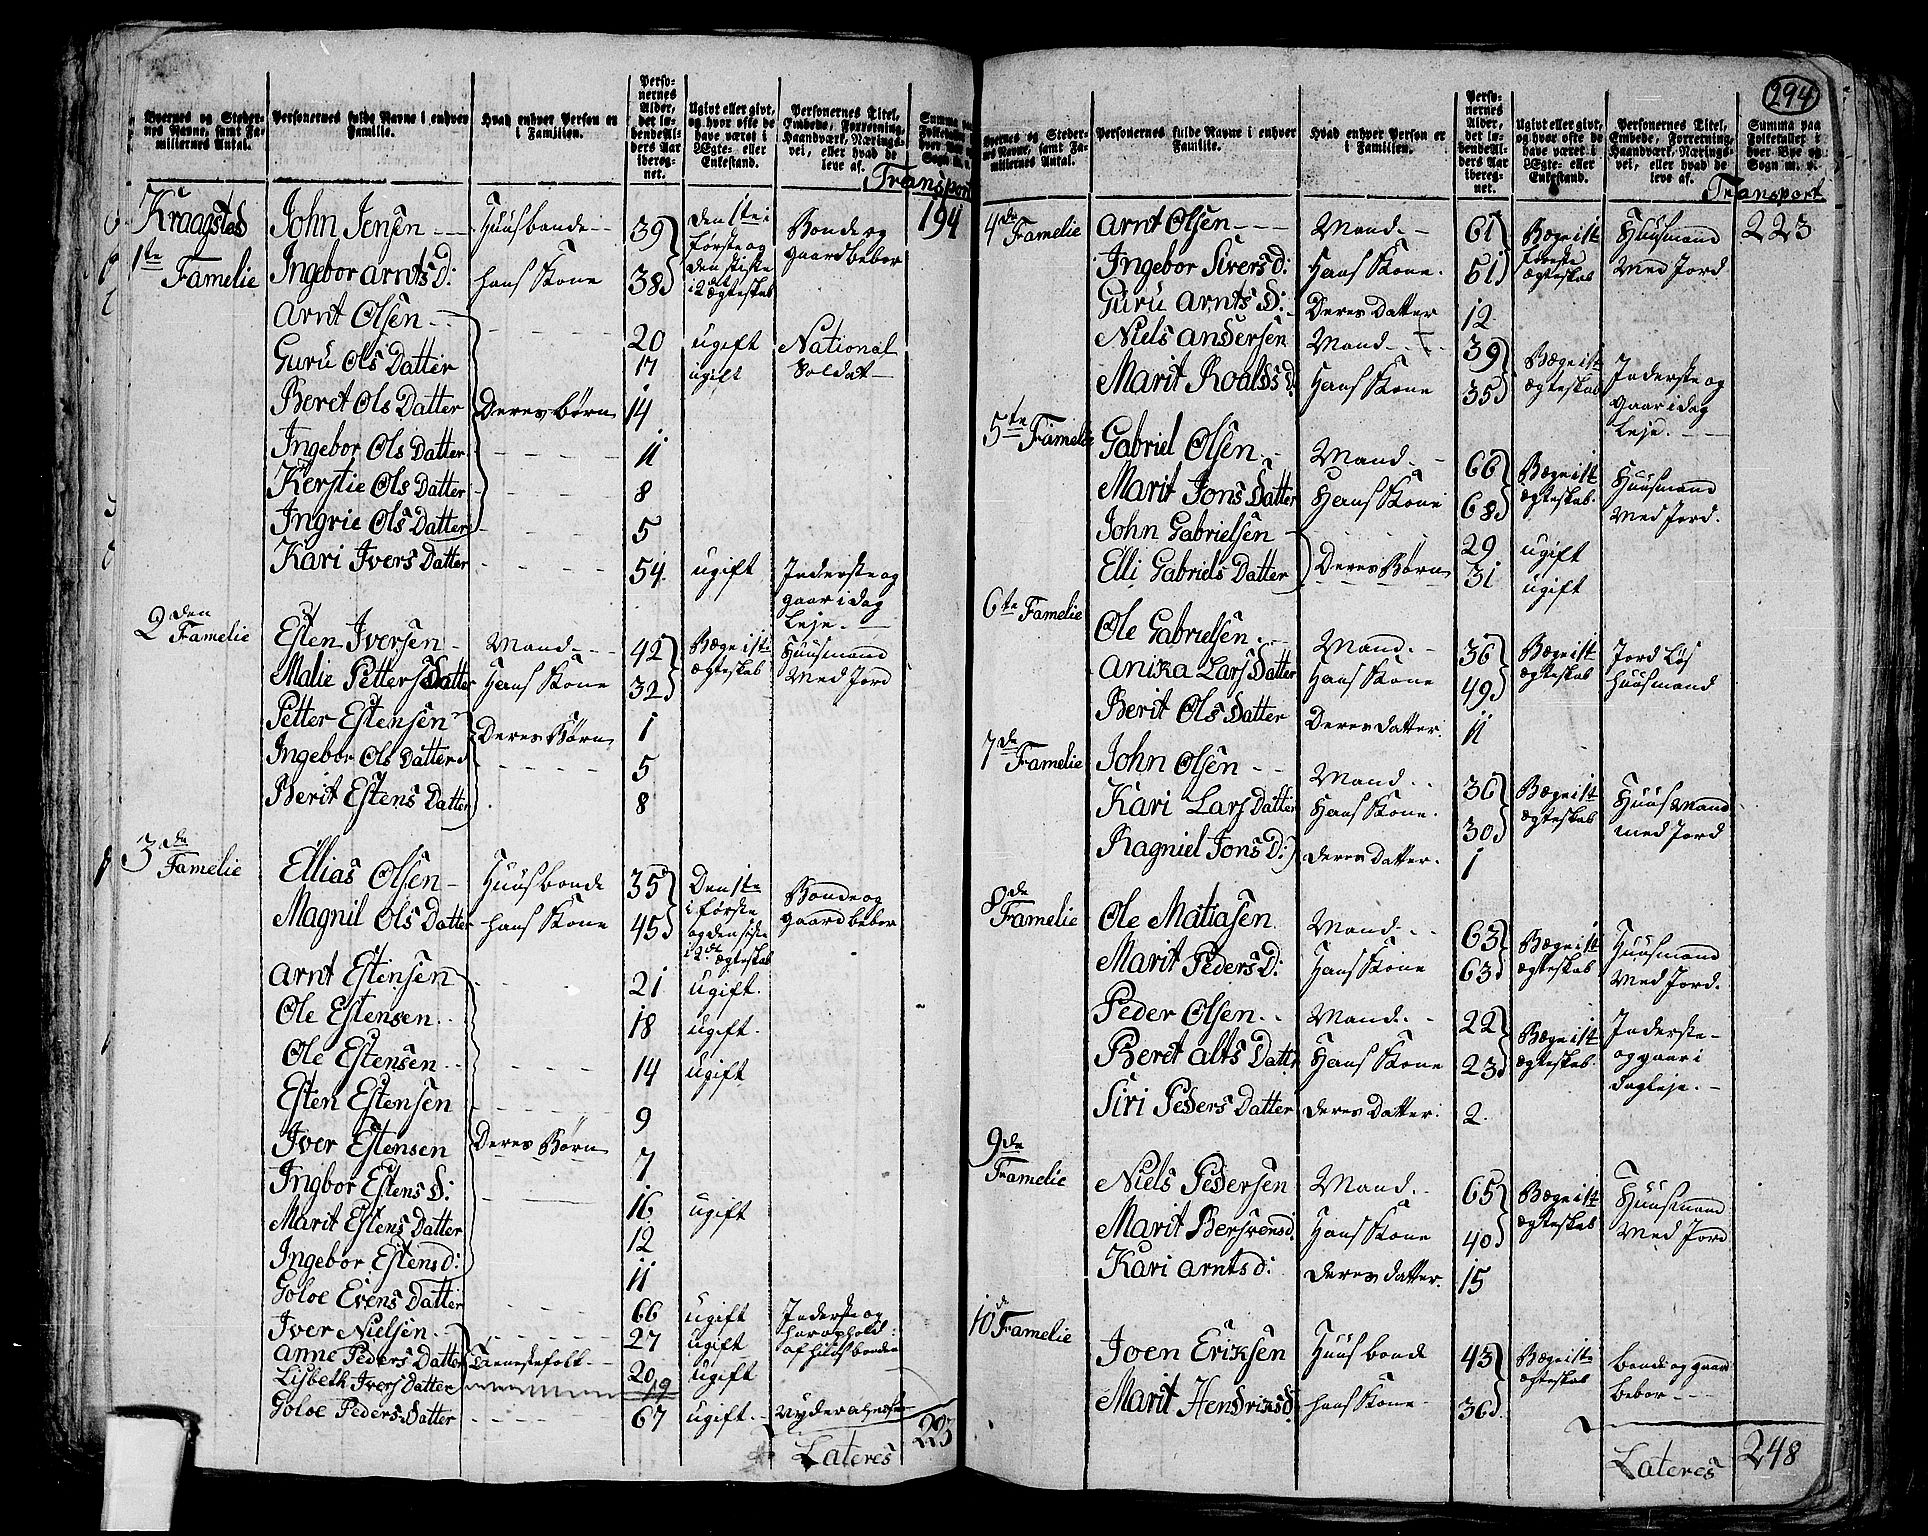 294
Byernes og Stedernes Navne, samt Familiernes Antal.
Personernes fulde Navne i enhver Familie.
Hvad enhver Person er i Familien.
Personernes Alder, det løbende Alders Aar iberegnet.
Ugivt eller givt, og hvor ofte de have været i Ægte- eller Enkestand.
Personernes Titel, Embede, Forretning, Haandværk, Næringsvei, eller hvad de leve af.
Transport
194
Kraagsted John Jensen Huusbonde 39 den 1ste i første og Bonde og gaardbeboer
1te Famelie Ingebor Arnts D: hans Kone 38 den sidste i 2et ægteskab
Arnt Olsen 20 ugift National Soldat
Guru Ols Datter 17 ugift
Beret Ols Datter Deres børn 14
Ingebor Ols Datter 11
Kerstie Ols Datter 8
Ingrie Ols Datter 5
Kari Ivers Datter 54 ugift Inderste og gaar i dag Leje.
2den Famelie
Esten Iversen Mand 42 Begge i 1ste ægteskab Huusmand Med Jord
Malie Petters Datter Hans Kone 32
Petter Estensen Deres Børn 1
Ingebor Ols Datter 5
Berit Estens Datter 8
3die Famelie
Ellias Olsen Huusbonde 35 Den 1ste i første Bonde og gaardbeboer
Magnil Ols Datter hans Kone 45 og den sidste i 2det ægteskab
Arnt Estensen 21 ugift.
Ole Estensen 18 ugift.
Ole Estensen 14 ugift
Esten Estensen 9
Iver Estensen Deres Børn 7
Ingbor Estens D: 16 ugift
Marit Estens Datter 12
Ingebor Estens d: 11
Goloe Evens Datter 66 ugift Inderste og har ophold af huusbonden
Iver Nielsen 27 ugift
Anne Peders Datter Tienestefolk 20 ugift
Lisbeth Ivers Datter 19
Goloe Peders Datter 67 ugift
Lateres 223
Byernes og Stedernes Navne, samt Familiernes Antal.
Personernes fulde Navne i enhver Familie.
Hvad enhver Person er i Familien.
Personernes Alder, det løbende Alders Aar iberegnet.
Ugivt eller givt, og hvor ofte de have været i Ægte- eller Enkestand.
Personernes Titel, Embede, Forretning, Haandværk, Næringsvei, eller hvad de leve af.
Summa paa Folketallet i hver Bye og Sogn m. v.
Transport
4de Famelie Arnt Olsen Mand 61 Begge i 1st første ægteskab Huusmand Med Jord 223
Ingebor Sivers D: Hans Kone. 61
Guru Arnts D: Deres Datter 12
Niels Andersen Mand 39 Begge i 1st ægteskab Inderste og gaar i dag Leje.
Marit Roalds D. Hans Kone 35
5te Famelie
Gabriel Olsen Mand. 66 Begge i 1st ægteskab. Huusmand Med Jord.
Marit Jons Datter Hans Kone 68
John Gabrielsen 29 ugift
Elli Gabriels Datter Deres Børn 31 ugift
6te Famelie
Ole Gabrielsen Mand. 36 Begge i 1st ægteskab Jord Løs huusmand
Anika Lars Datter Hans Kone 49
Berit Ols Datter Deres datter. 11
7de Famelie John Olsen Mand. 36 Begge i 1st ægteskab Huus Mand med Jord
Kari Lars Datter Hans Kone. 30
Ragniel Jons D: deres Datter. 1
8de Famelie
Ole Matiasen Mand. 63 Begge i 1st ægteskab Huusmand Med Jord.
Marit Peders D: Hans Kone 63
Peder Olsen Mand. 22 Begge i 1st ægteskab. Inderste og gaar i dagleje.
Beret Alts Datter Hans Kone 23
Siri Peders Datter deres Datter. 2
9de Famelie
Niels Pedersen Mand. 65 Begge i 1st ægteskab Huusmand Med Jord
Marit Bersvens d. Hans Kone 40
Kari Arnts d: deres datter. 15
10de Famelie
Joen Eriksen Huusbonde 43 Begge i 1ste ægteskab bonde og gaardbeboer
Marit Hendriks d. hans Kone 36
Lateres 248